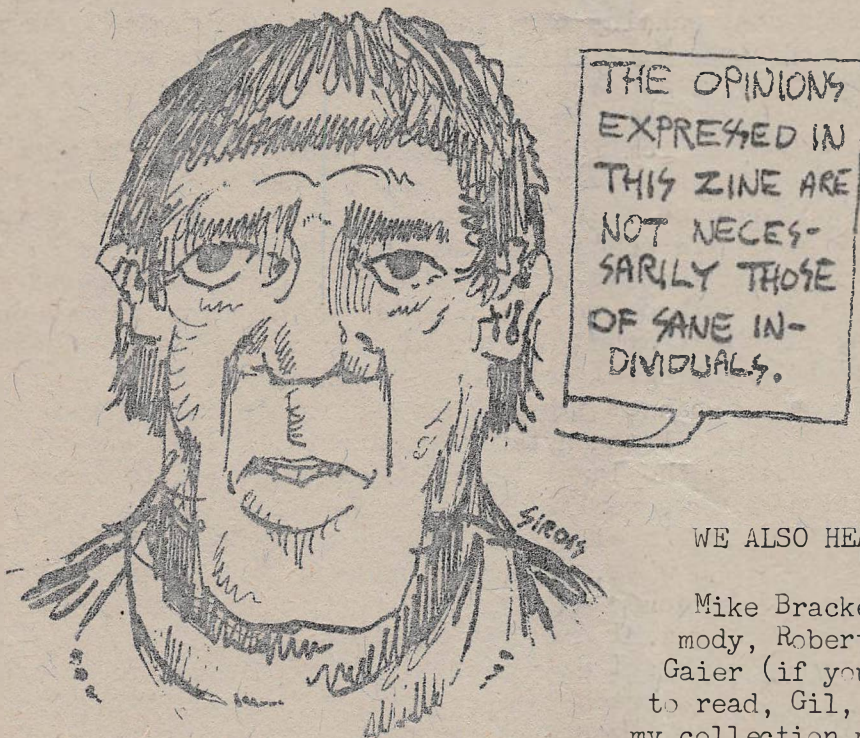 THE OPINIONS
EXPRESSED IN
THIS ZINE ARE
NOT NECES-
SARILY THOSE
OF SANE IN-
DIVIDUALS.
SIROIS
WE ALSO HEA
Mike Bracke
mody, Rober
Gaier (if you
to read, Gil,
my collection